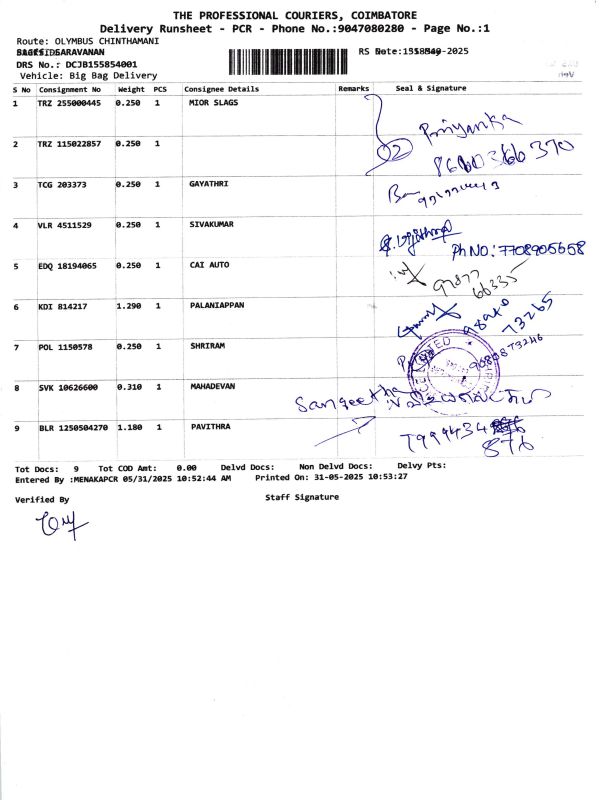 THE PROFESSIONAL COURIERS, COIMBATORE
Delivery Runsheet - PCR - Phone No.:9047080280 - Page No.:1
Route: OLYMBUS CHINTHAMANI
SARAVANAN
DRS No.: DCJB155854001
Vehicle: Big Bag Delivery
S No Consignment No Weight PCS Consignee Details Remarks Seal & Signature
1 TRZ 255000445 0.250 1 MIOR SLAGS
Priyanka
2 TRZ 115022857 0.250 1
3 TCG 203373 0.250 1 GAYATHRI
4 VLR 4511529 0.250 1 SIVAKUMAR
Ph NO.: 7708905658
5 EDQ 18194065 0.250 1 CAI AUTO
97877
66335
6 KDI 814217 1.290 1 PALANIAPPAN
73265
7 POL 1150578 0.250 1 SHRIRAM
9080873246
8 SVK 10626600 0.310 1 MAHADEVAN
Sangeetha
9 BLR 1250504270 1.180 1 PAVITHRA
T999434
876
Tot Docs: 9 Tot COD Amt: 0.00 Delvd Docs: Non Delvd Docs: Delvy Pts:
Entered By :MENAKAPCR 05/31/2025 10:52:44 AM Printed On: 31-05-2025 10:53:27
Verified By Staff Signature